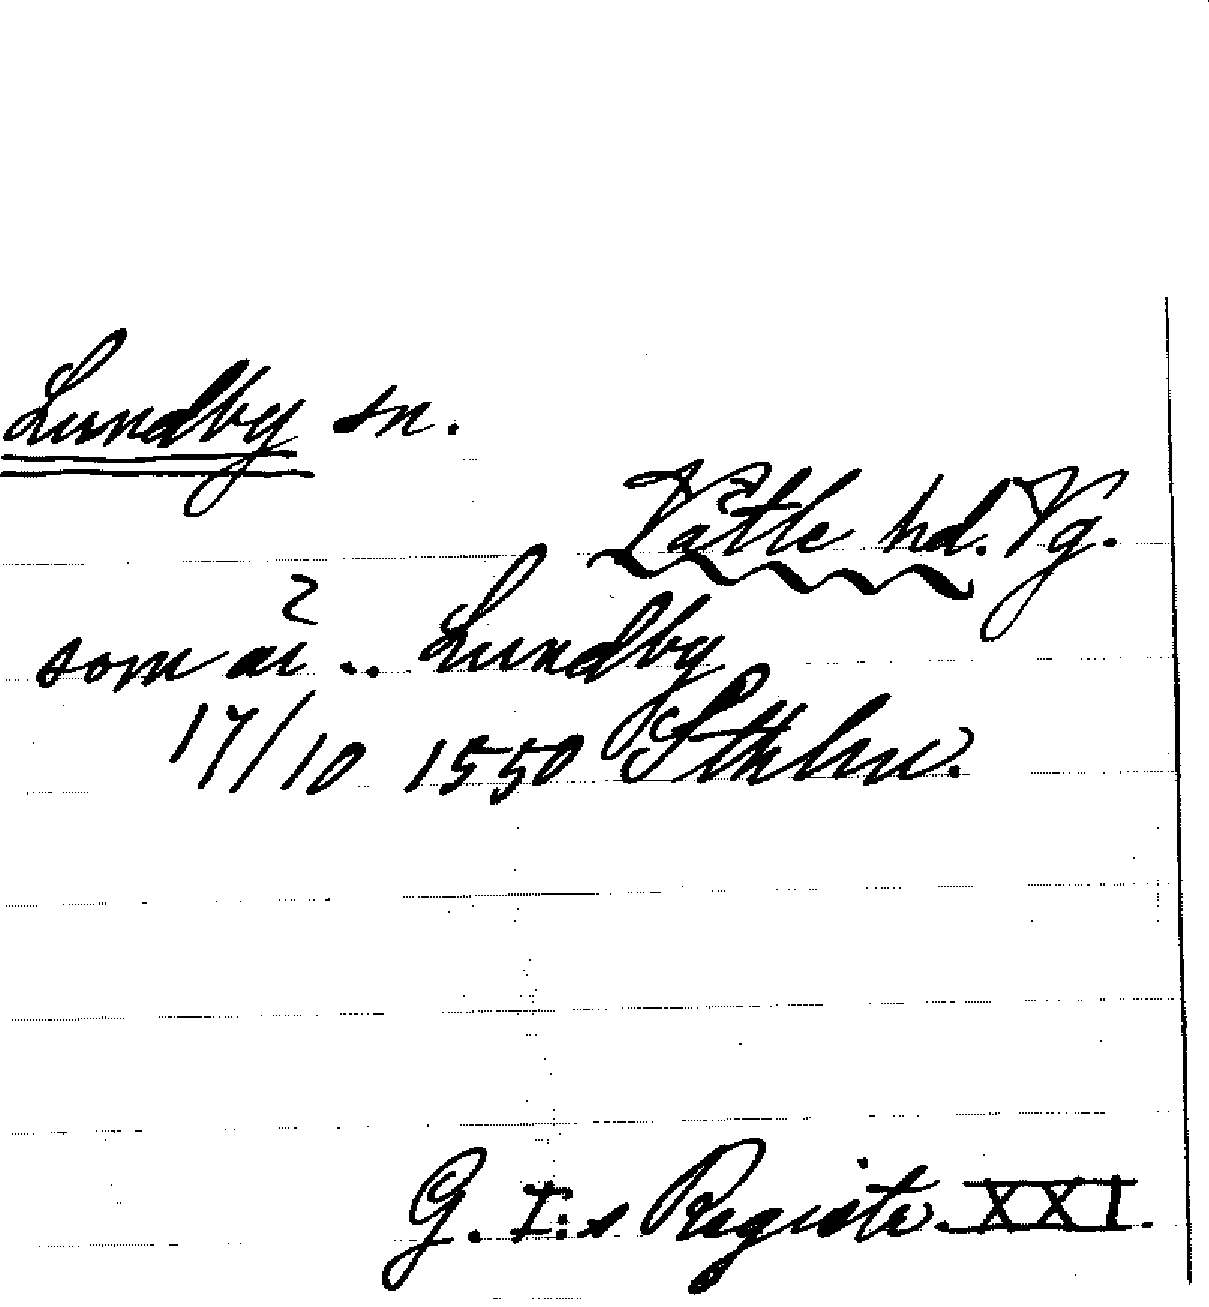 Lundby sn.
Vättle hd. Vg.
som äi .. Lundby
17/10 1550 Sthlm.
G. I:s Registr. XXI.